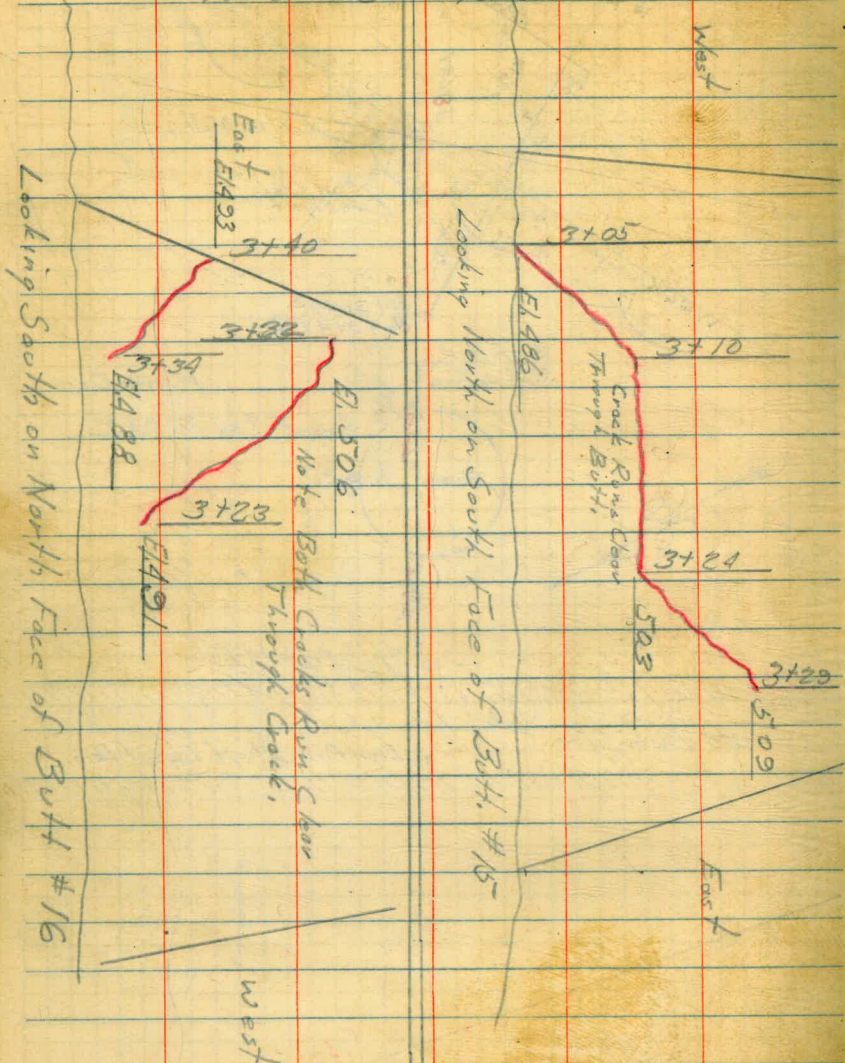 West
East
3+05
El. 486
3+10
Crack Runs Clear
Through Butt.
3+24
503
3+29
509
Looking North on South Face of Butt. #15
East
West
El. 493
3+40
3+34
El. 488
3+22
El. 506
3+23
El. 491
Note Both Cracks Run Clear
Through Crack.
Looking South on North Face of Butt #16